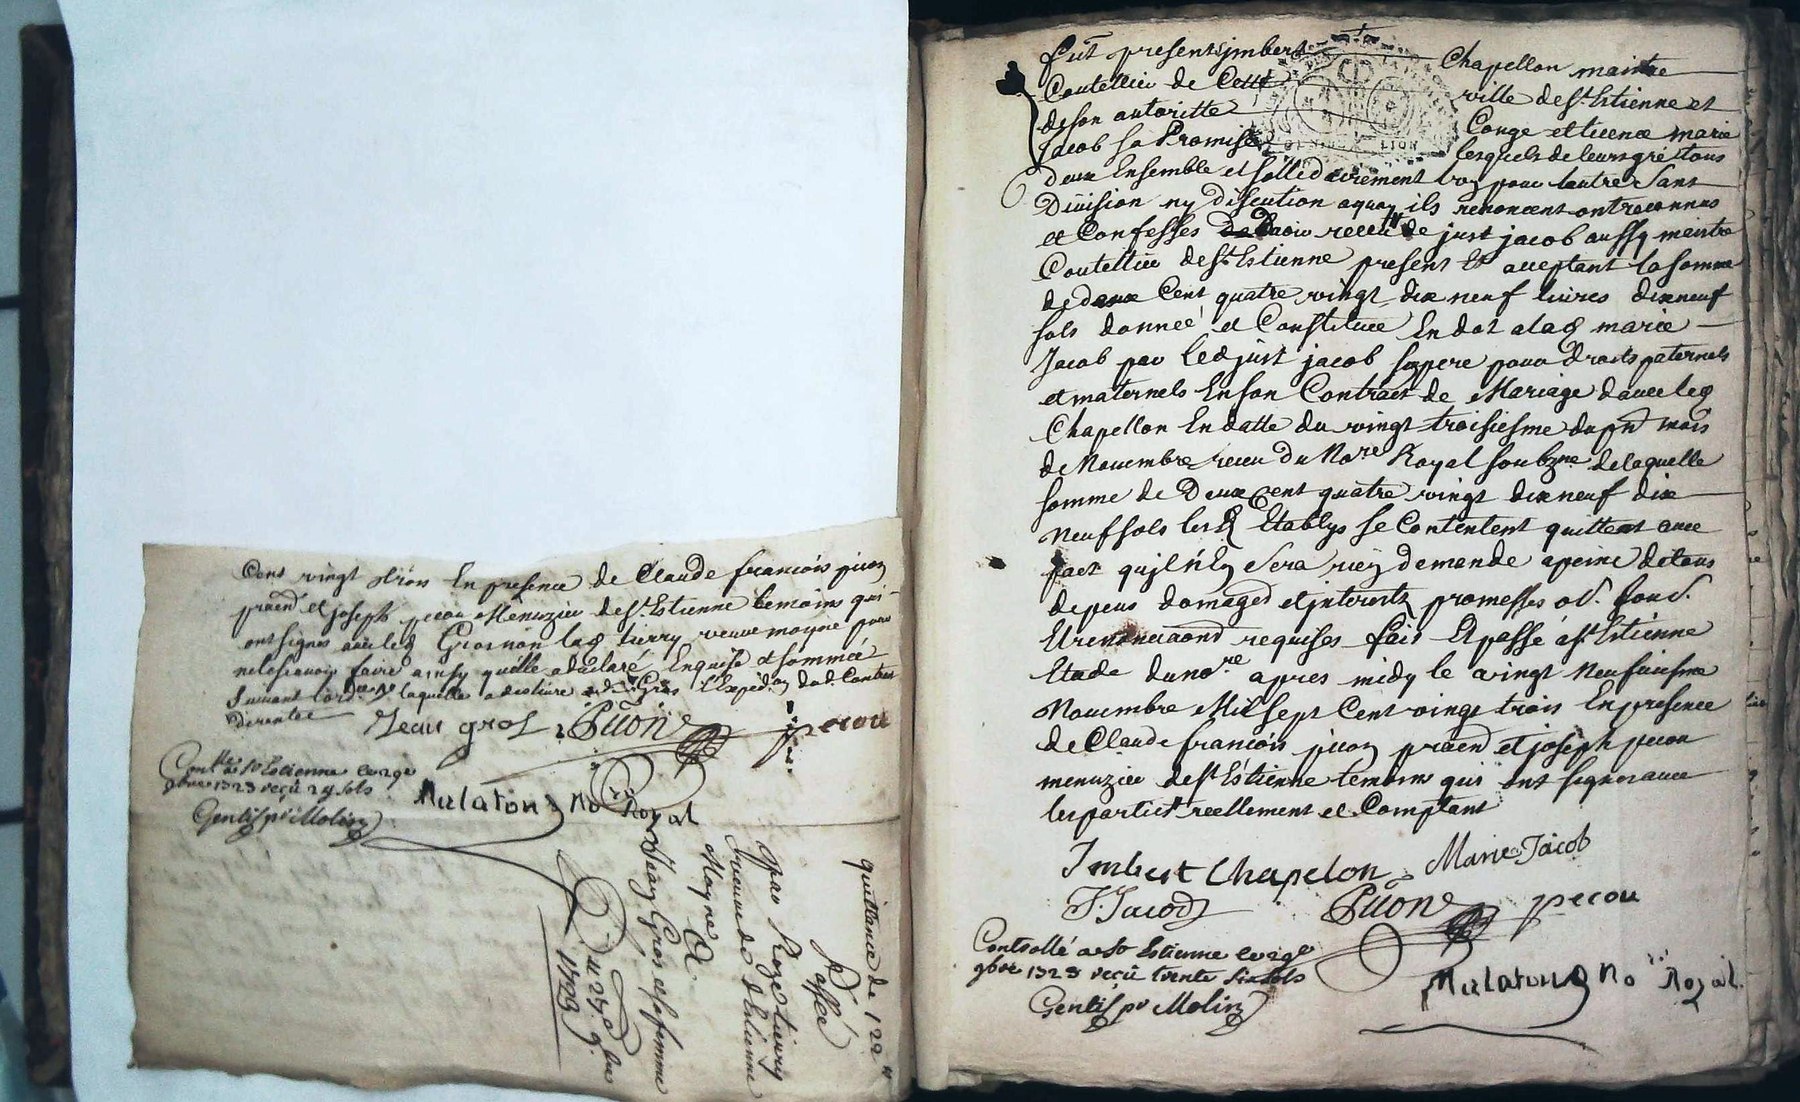 Cent vingt trois En presence de Claude francois picon
praend et joseph pecou Menuzier de St Estienne temoins qui
ont signes avec led Grosnon lad tierry veuve moyne pour
ne le scavoir faire ainsy quelle a declaré Enquise et sommeé
Suivant lord.ce laquelle a des livre Gros
Jean gros Picone pecou
Contlé a St Estienne le 29e
9bre 1723 reçu 24 sols
Gentil pr Molin
Mulaton No re Royal
quittance de 122
Passé
par Roze tierry
veuve de Estienne
Moyne A
Jean Gros et sa femme
Du 27 9bre
1723
fut present jmbert Chapellon maitre
Coutellier de Cette ville de St Estienne et
de son autoritte Conge et licence marie
Jacob sa Promise lesquels de leurs gré tous
deux Ensemble et sollidairement lun pour lautre Sans
Division ny discution a quoy ils renoncent ont reconnus
et Confesses avoir receu de just jacob aussy maitre
Coutellier de St Estienne present Et acceptant la somme
de deux Cent quatre vingt dix neuf livres dixneuf
sols donneé et Constituee En dot a lad marie
Jacob par led just jacob son pere pour droits paternels
et maternels En son Contract de Mariage d avec led
Chapellon En datte du vingt troisiesme du pnt mois
de Novembre receu du No.re Royal soubzne de laquelle
somme de Deux Cent quatre vingt dix neuf dix
neuf sols les d Etablys se Contentent quittent avec
pact qujl nEn Sera rien demande a peine de tous
depens domages et jnterests promesses ob. soud.
Et renonciaons requises fait Et passé a St Estienne
Etude du no.re apres midy le vingt Neufviesme
Novembre Mil sept Cent vingt trois En presence
de Claude francois picon praend et joseph pecou
menuzier de St Estienne temoins qui ont signes avec
les parties reellement et Comptant
Imbert Chapelon Marie Jacob
J. Jacod Picone pecou
Controllé a St Estienne le 29e
9bre 1723 reçu trente six sols
Gentil pr Molin
Mulaton No re Royal.